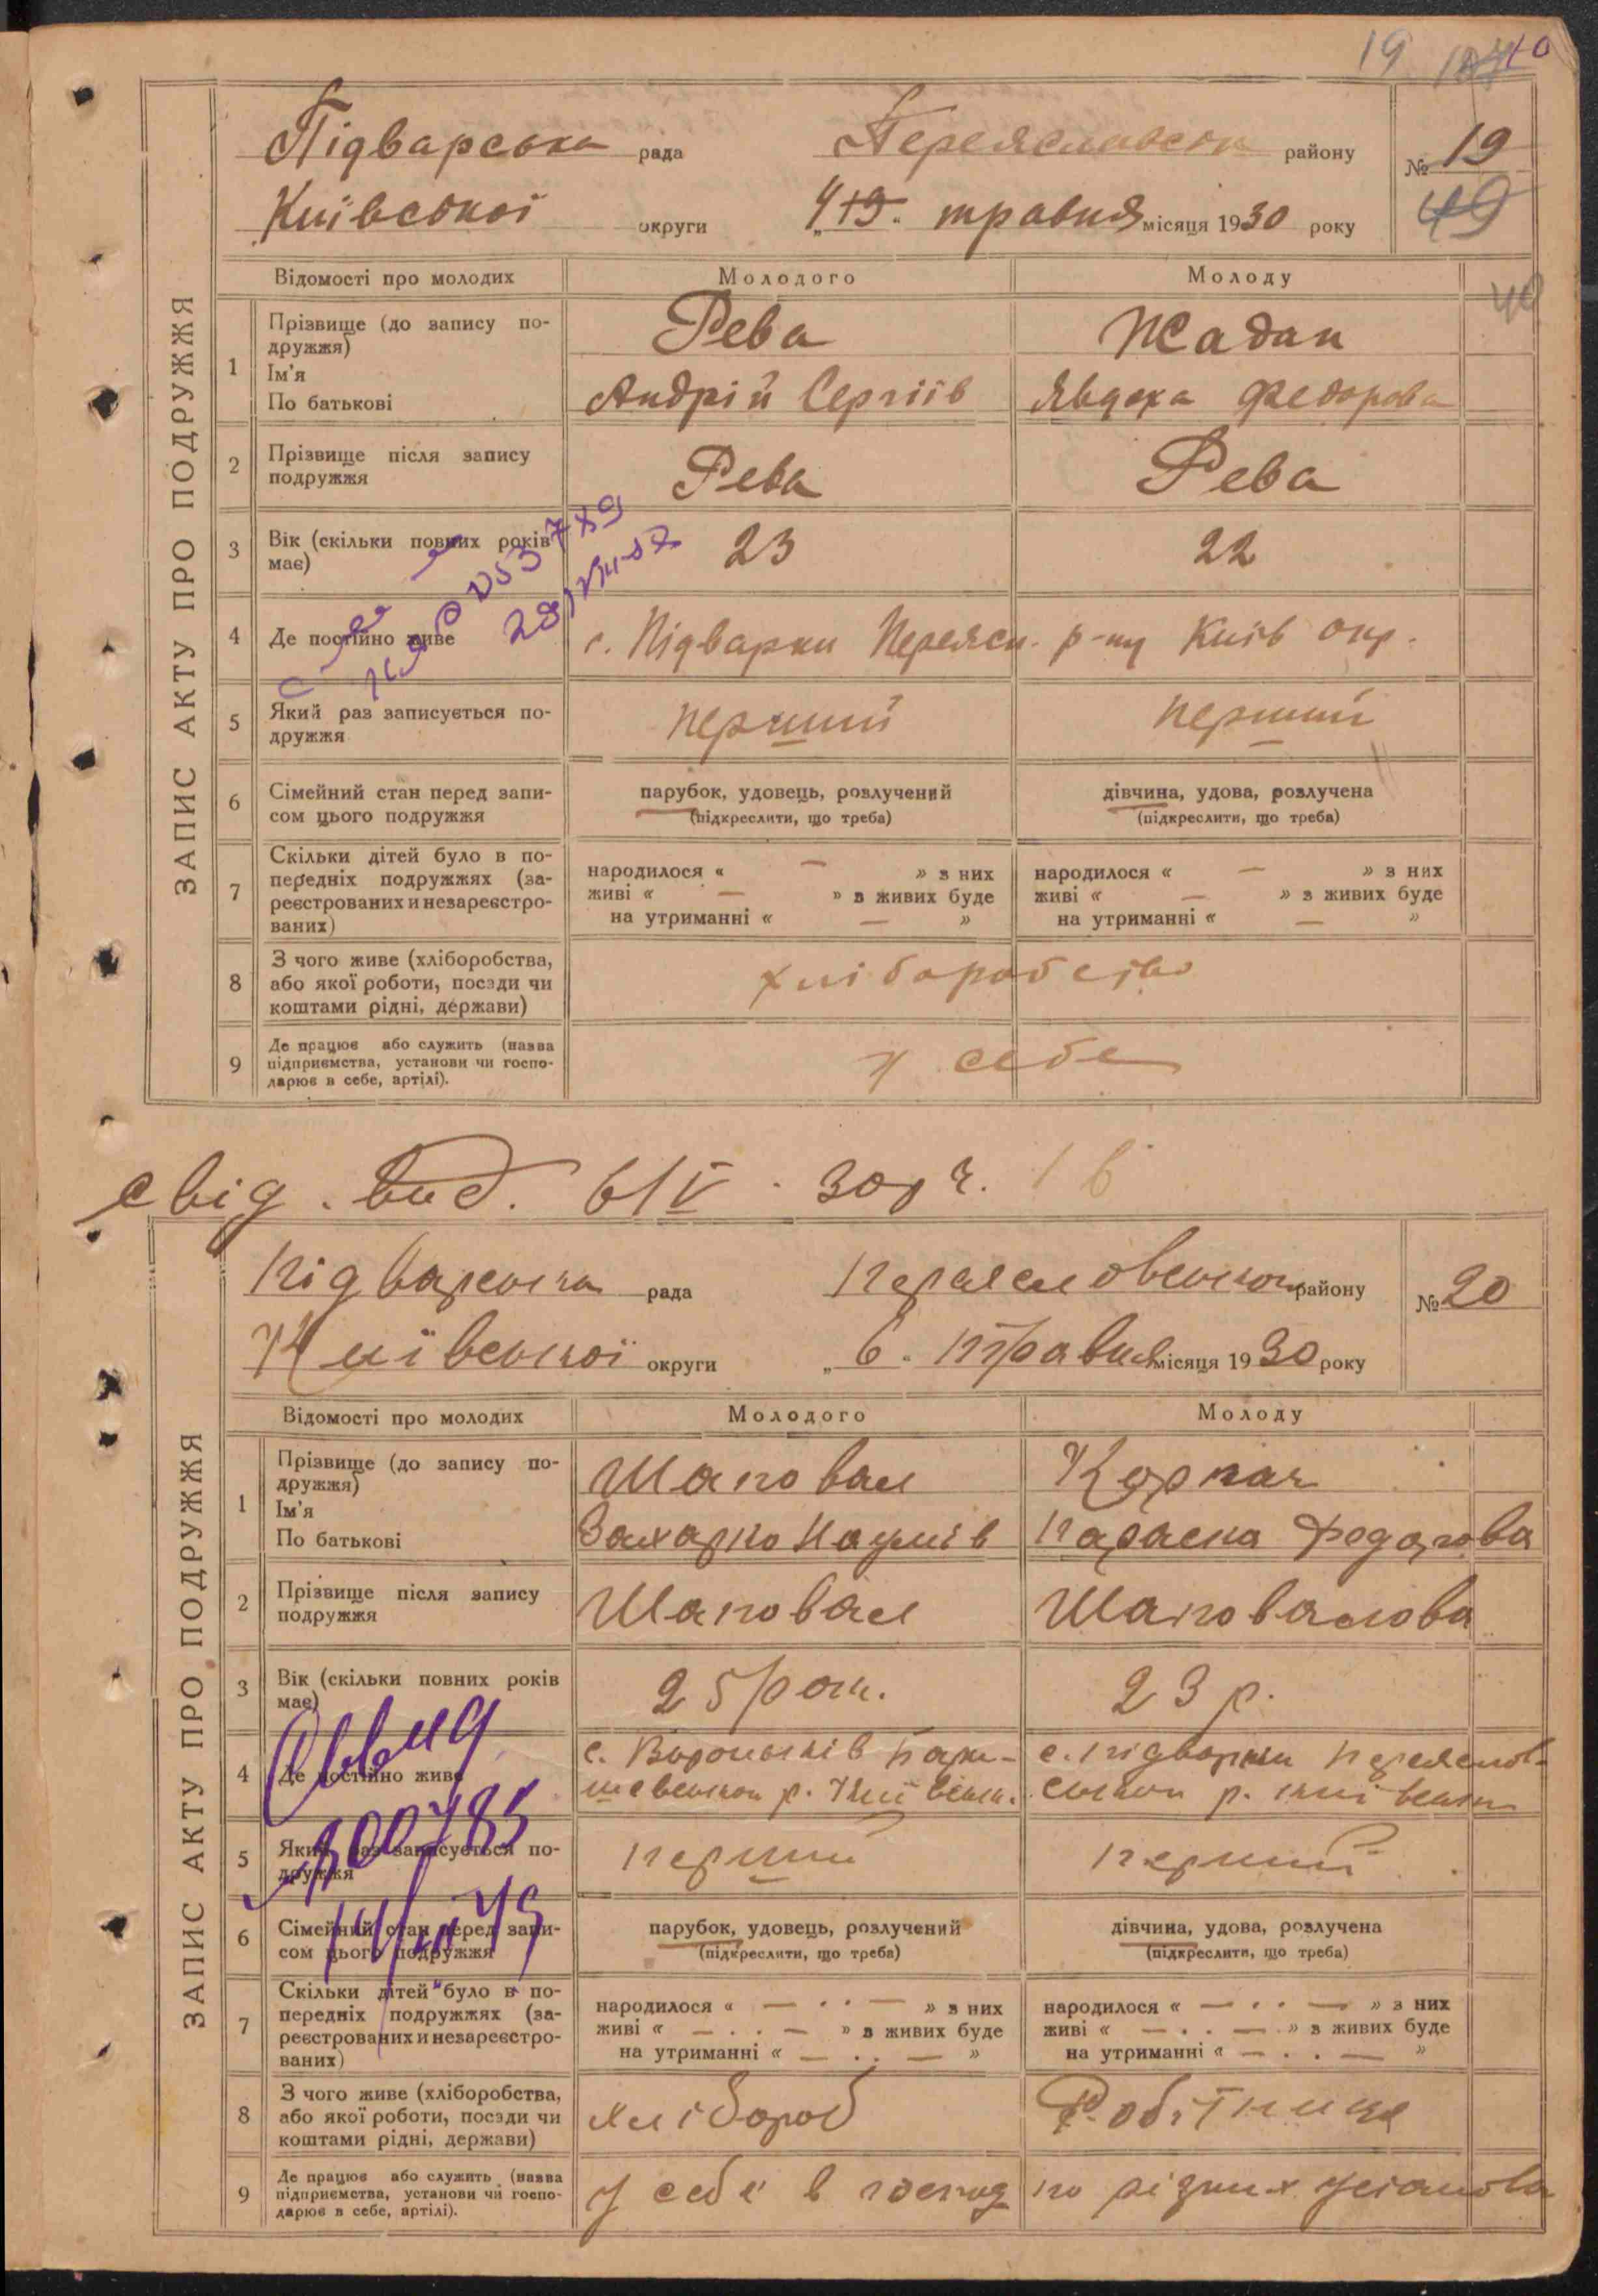 19 10
ЗАПИС АКТУ ПРО ПОДРУЖЖЯ
Підварська рада Переяславськ району № 19
Київської округи „4 19“ травня місяця 1930 року 49
Відомості про молодих Молодого Молоду
40
1 Прізвище (до запису по-
дружжя) Рева Жадан
Ім'я
По батькові Андрій Сергіїв Явдоха Федорова
2 Прізвище після запису
подружжя Рева Рева
3 Вік (скільки повних років
має) 23 22
4 Де постійно живе с. Підварки Переясл. р-ну Київ окр.
5 Який раз записується по-
дружжя перший перший
6 Сімейний стан перед запи-
сом цього подружжя
парубок, удовець, розлучений
(підкреслити, що треба)
дівчина, удова, розлучена
(підкреслити, що треба)
7 Скільки дітей було в по-
передніх подружжях (за-
реєстрованих и незареєстро-
ваних)
народилося « — » з них
живі « — » в живих буде
на утриманні « — »
народилося « — » з них
живі « — » з живих буде
на утриманні « — »
8 З чого живе (хліборобства,
або якої роботи, посади чи
коштами рідні, держави)
хліборобство
9 Де працює або служить (назва
підприємства, установи чи госпо-
дарює в себе, артілі).
у себе
свід. вид. 6/V 30 р
ЗАПИС АКТУ ПРО ПОДРУЖЖЯ
Підварська рада Переясловської району № 20
Київської округи „6“ травня місяця 1930 року
Відомості про молодих Молодого Молоду
1 Прізвище (до запису по-
дружжя) Шаповал Корпач
Ім'я
По батькові Захарко Наумів Параска Федорова
2 Прізвище після запису
подружжя Шаповал Шаповалова
3 Вік (скільки повних років
має) 25 рок. 23 р.
4 Де постійно живе
с. Вороньків Бари-
шевської р. Київськ.
с. Підварки Переяслов-
ської р. Київськ
5 Який раз записується по-
дружжя перший перший
6 Сімейний стан перед запи-
сом цього подружжя
парубок, удовець, розлучений
(підкреслити, що треба)
дівчина, удова, розлучена
(підкреслити, що треба)
7 Скільки дітей було в по-
передніх подружжях (за-
реєстрованих и незареєстро-
ваних)
народилося « — . . — » з них
живі « — . . — » в живих буде
на утриманні « — . . — »
народилося « — . . — » з них
живі « — . . — » в живих буде
на утриманні « — . . — »
8 З чого живе (хліборобства,
або якої роботи, посади чи
коштами рідні, держави)
хлібороб Робітниця
9 Де працює або служить (назва
підприємства, установи чи госпо-
дарює в себе, артілі).
у себе в господ по різних установа